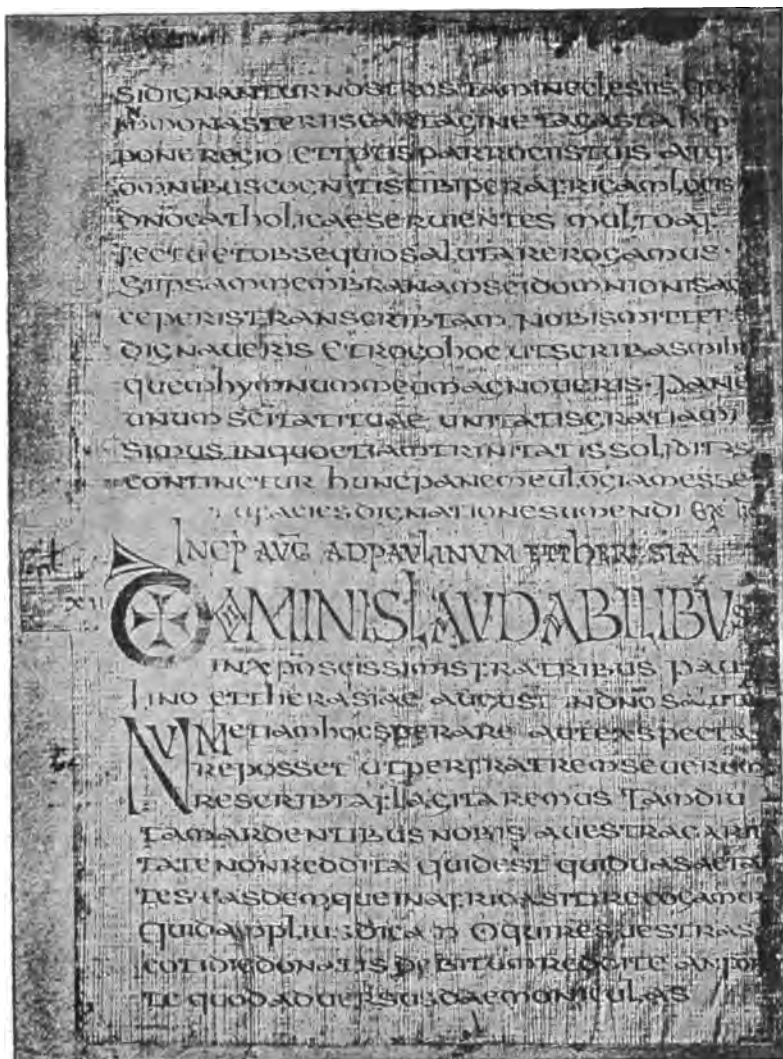 SIDIGNANTUR NOSTROS TAM IN ECLESIIS QUA
IN MONASTERIIS CARTAGINE TAGASTA HIP
PONE REGIO ET IPSIS PARROCIIS TUIS ATQ
OMNIBUS COGNITIS TIBI PER AFRICAM LOCIS
DNO CATHOLICAE SERUIENTES MULTO AF
FECTU ET OBSEQUIO SALUTARE ROGAMUS ·
SI IPSAM MEMBRANAM SCI DOMNIONIS AC
CEPERIS TRANSCRIBTAM NOBIS MITTERE
DIGNAUERIS ET ROGO HOC UT SCRIBAS MIHI
QUEM HYMNUM MEUM AGNOUERIS · PANE
UNUM SCITATI TUAE UNITATIS GRATIA MI
SIMUS IN QUO ETIAM TRINITATIS SOLIDITAS
CONTINETUR HUNC PANEM EULOGIAM ESSE
TU FACIES DIGNATIONE SUMENDI
INCP AVG AD PAVLINVM ET THERESIA
XII DOMINIS LAVDABILIBVS
IN XPO SCISSIMIS FRATRIBUS PAU
LINO ET THERASIAE AUGUST IN DNO SALUT
NUM ETIAM HOC SPERARE AUT EXSPECTA
RE POSSET UT PER FRATREM SEUERUM
RESCRIBTA FLAGITAREMUS TAMDIU
TAM ARDENTIBUS NOBIS A UESTRA CARI
TATE NON REDDITA QUID EST QUI DUAS AESTA
TES EASDEMQUE IN AFRICA SITIRE COGAMUR
QUID AMPLIUS DICAM O QUI RES UESTRAS
COTIDIE DONATIS DEBITUM REDDITE AN FOR
TE QUOD ADUERSUS DAEMONICULAS